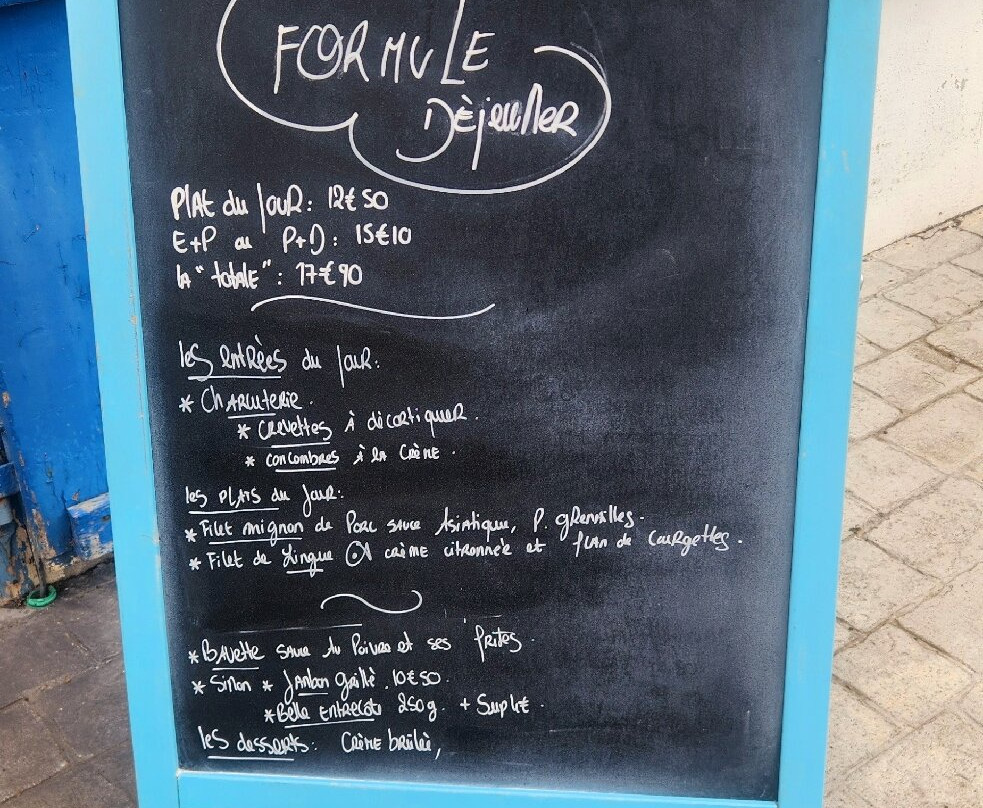 FORMULE
Dèjeuner
Plat du Jour: 12€50
E+P ou P+D: 15€10
la "totale": 17€90
les entrèes du jour:
* Charcuterie.
* Crevettes à dècortiquer.
* concombres à la Crème.
les PLATS du Jour:
* Filet mignon de Porc sauce Asiatique, P. grenailles.
* Filet de Lingue crème citronnèe et flan de courgettes.
* Bavette sauce au Poivre et ses frites.
* Sinon * Jambon grillè. 10€50.
* Belle Entrecote 250g. + Suplt.
les desserts: Crème brûlèe,